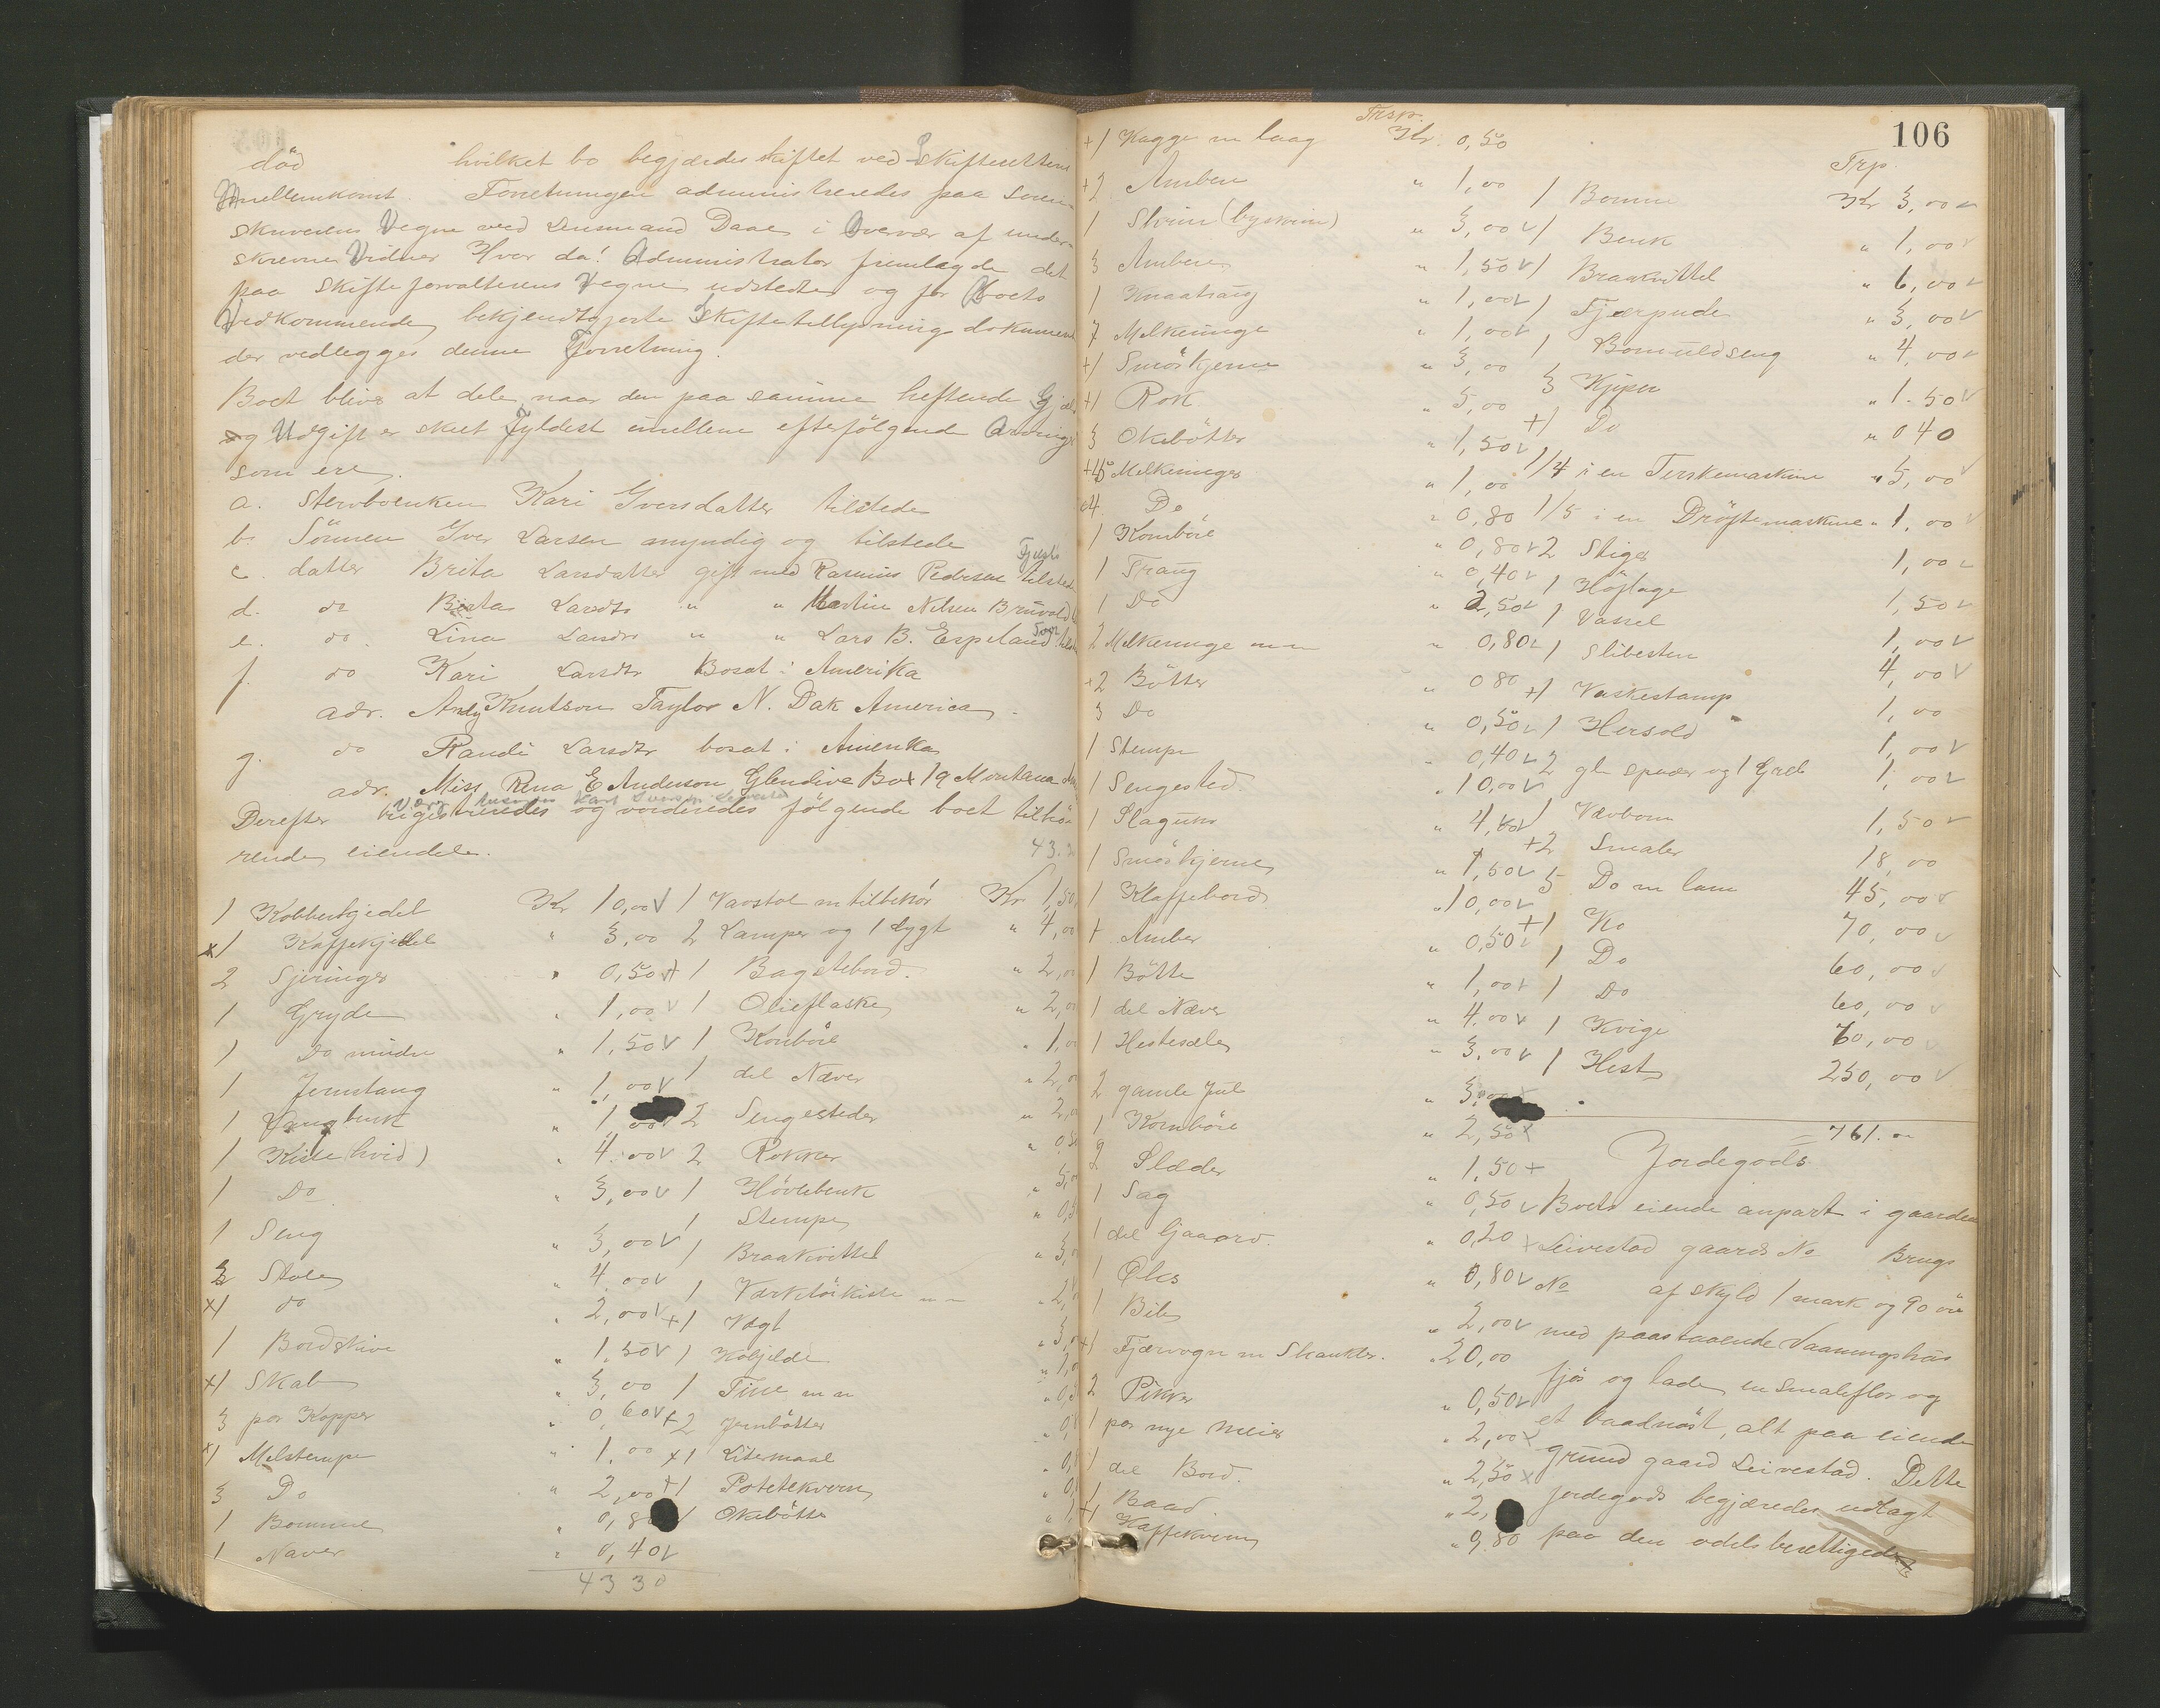 død hvilket bo begjærdes skiftet ved Skifterettens
Mellemkomst. Forretningen administreredes paa Soren-
skriverens Vegne ved Lensmand Daae i Overvær af under-
skrevne Vidner Hvor da! Administrator fremlagde det
paa Skifteforvalterens Vegne udstedte og for Boets
Vedkommende bekjendtgjorte Skiftetillysning dokument
der vedlegges denne Forretning.
Boet bliver at dele naar den paa samme heftende Gjæl
og Udgift er skeet Fyldest imellem efterfölgende Arvinger
som ere
a. Stervboenken Kari Iversdatter tilstede
b. Sönnen Iver Larsen myndig og tilstede
c. datter Brita Larsdatter gift med Rasmus Pedersen tilstede
d. do Berta Larsdtr " " Martin Nilsen Bruvold
e. do Lina Larsdtr " " Lars B. Espeland
f. do Kari Larsdtr Bosat i Amerika
adr. Andy Knutson Taylor N. Dak America
g. do Randi Larsdtr bosat i Amerika
adr. Miss Rena E Anderson Glendive Box 19 Montana
Derefter registreredes og vorderedes følgende boet tilhö-
rende eiendele.
1 Kobberkjedel Kr 10,00
x1 Kaffekjedel " 3,00
2 Sjeringer " 0,50
1 Gryde " 1,00
1 Do mindre " 1,50
1 Jernstang " 1,00
1 Langbenk " 1,00
1 Kiste (hvid) " 4,00
1 Do " 3,00
1 Seng " 3,00
3 Stole " 4,00
x1 do " 2,00
1 Bordskive " 1,50
x1 Skab " 3,00
3 par Kopper " 0,60
x1 Melstempe " 1,00
3 Do " 2,00
1 Bomme " 0,80
1 Naver " 0,40
43 30
1 Vævstol m tilbehör Kr 1,50
2 Lamper og 1 Lygt " 4,00
+1 Bagstebord " 2,
1 Olieflaske " 2,0
1 Kornböre " 1,0
1 del Næver " 2,
2 Sengesteder " 2,
2 Rokker " 0,50
1 Hövlebenk " 5,0
1 Stempe " 0,5
1 Braakvittel " 3,
1 Værktöikiste m m " 2,
+1 Vægt " 3,
1 Kobjelde " 1,0
1 Tine m m " 0,
+2 Jernbötter " 0,
x1 Litermaal " 0,
+1 Potetekvern " 0,
1 Okebötte
106
+1 Kagge m laag Kr 0,50
+2 Ambere " 1,00
1 Skrin (byskrin) " 3,00
3 Ambere " 1,50
1 Knaatraug " 1,00
7 Melkeringe " 1,00
+1 Smörkjerne " 3,00
+1 Rok " 5,00
3 Okebötter " 1,50
Melkeringer " 1,00
4 Do " 0,80
1 Kornböre " 0,80
1 Traug " 0,40
1 Do " 2,50
2 Melkeringe m m " 0,80
+2 Bötter " 0 80
3 Do " 0,50
1 Stempe " 0,40
1 Sengested " 10,00
1 Slagure " 4,00
1 Smörkjerne " 1,50
1 Klaffebord " 10,00
+ Amber " 0,50
1 Bötte " 1,00
1 del Næver " 4,00
1 Hestesele " 3,00
2 gamle Jul " 3,00
1 Kornböre " 2,50
2 Slæder " 1,50
1 Sag " 0,50
1 del Gjaaord " 0,20
1 Öks " 0,80
1 Bile " 2,00
+1 Fjærvogn m Skankler " 20,00
2 Pikker " 0,50
1 par nye Meier " 2,00
1 del Bord " 2,50
1 Baad " 2,
+1 Kaffekvern " 0,80
Trp
1 Bomme Kr 3,00
1 Benk " 1,00
1 Braakvittel " 6,00
1 Fjærpude " 3,00
1 Bomuldseng " 4,00
3 Kjiper " 1.50
+1 Do " 0 40
1/4 i en Terskemaskine " 5,00
1/5 i en Dröftemaskine " 1,00
2 Stiger 1,00
1 Höftage 1,50
1 Vassel 1,00
1 Slibesten 4,00
+1 Vaskestamp 1,00
1 Hersold 1,00
2 gl spader og 1 Greb 1,00
1 Vævbom 1,50
+2 Smaler 18,00
5 Do m lam 45,00
+1 Ko 70,00
1 Do 60,00
1 Do 60,00
1 Kvige 70,00
1 Hest 250,00
761.00
Jordegods
Boets eiende anpart i gaarden
Leivestad gaards No Brugs
No af skyld 1 mark og 90 öre
med paastaaende Vaaningshus
fjös og lade en smaleflor og
et baadnöst, alt paa eiende
grund gaard Leivestad. Dette
jordegods begjæredes udlagt
paa den odelsberettigede